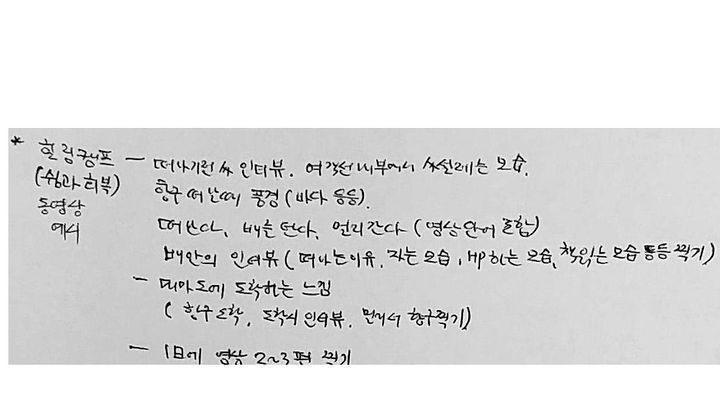 * 힐링캠프 — 떠나기전 인터뷰. 여객선 내부에서 설레는 모습.
(쉼과 회복) 항구 떠날때 풍경 (바다 등등).
동영상 떠난다, 배를 탄다, 멀리간다 (영상단어 조합)
예시 배안의 인터뷰 (떠나는이유, 자는 모습, HP하는 모습, 책읽는 모습 등등 찍기)
— 대마도에 도착하는 느낌
(항구도착, 도착시 인터뷰, 먼저서 항구찍기)
— 1日에 영상 2~3편 찍기